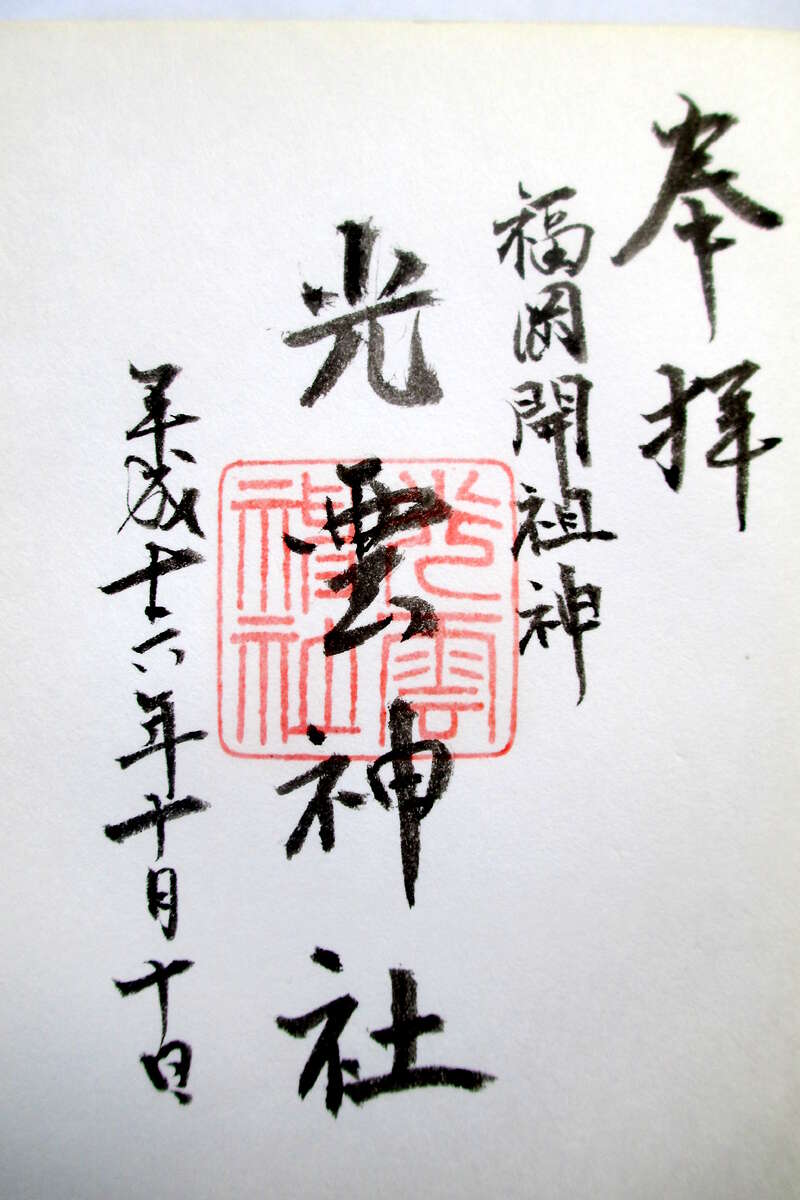 奉拝
福岡開祖神
光雲神社
光雲神社
平成十六年十月十日